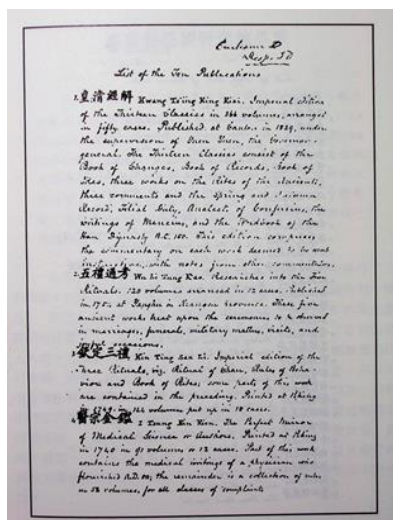 Enclosure D
Desp. 30
List of the Ten Publications
1. 皇清經解 Kwang Ts'ing King Kiai. Imperial edition
of the Thirteen Classics in 366 volumes, arranged
in fifty cases. Published at Canton in 1829, under
the supervision of Yuen Yuen, the Governor-
general. The Thirteen Classics consist of the
Book of Changes, Book of Records, Book of
Odes, three works on the Rites of the Ancients,
three comments and the Spring and Autumn
Record, Filial Duty, Analects of Confucius, the
writings of Mencius, and the Wordbook of the
Han Dynasty B.C. 150. This edition comprises
the commentary on each work deemed to be most
instructive, with notes from other commentators.
2. 五禮通考 Wu Li Tung Kao. Researches into the Five
Rituals. 120 volumes arranged in 12 cases. Published
in 1754 at in Kiangsu Province. These five
ancient works treat upon the ceremonies to be observed
in marriages, funerals, military matters, visits, and
joyful occasions.
3. 欽定三禮 Kin Ting San Li. Imperial edition of the
three Rituals, viz. Ritual of Chau, Rules of Beha-
vior and Book of Rites; some parts of this work
are contained in the preceding. Printed at Peking
in 144 volumes put up in 18 cases.
4. 醫宗金鑑 I Tsung Kin Kien. The Perfect Mirror
of Medical Science or Authors. Printed at Peking
in 1740 in 91 volumes or 12 cases. Part of this work
contains the medical writings of a physician who
flourished the remainder is a collection of
in 58 volumes, for all classes of complaints